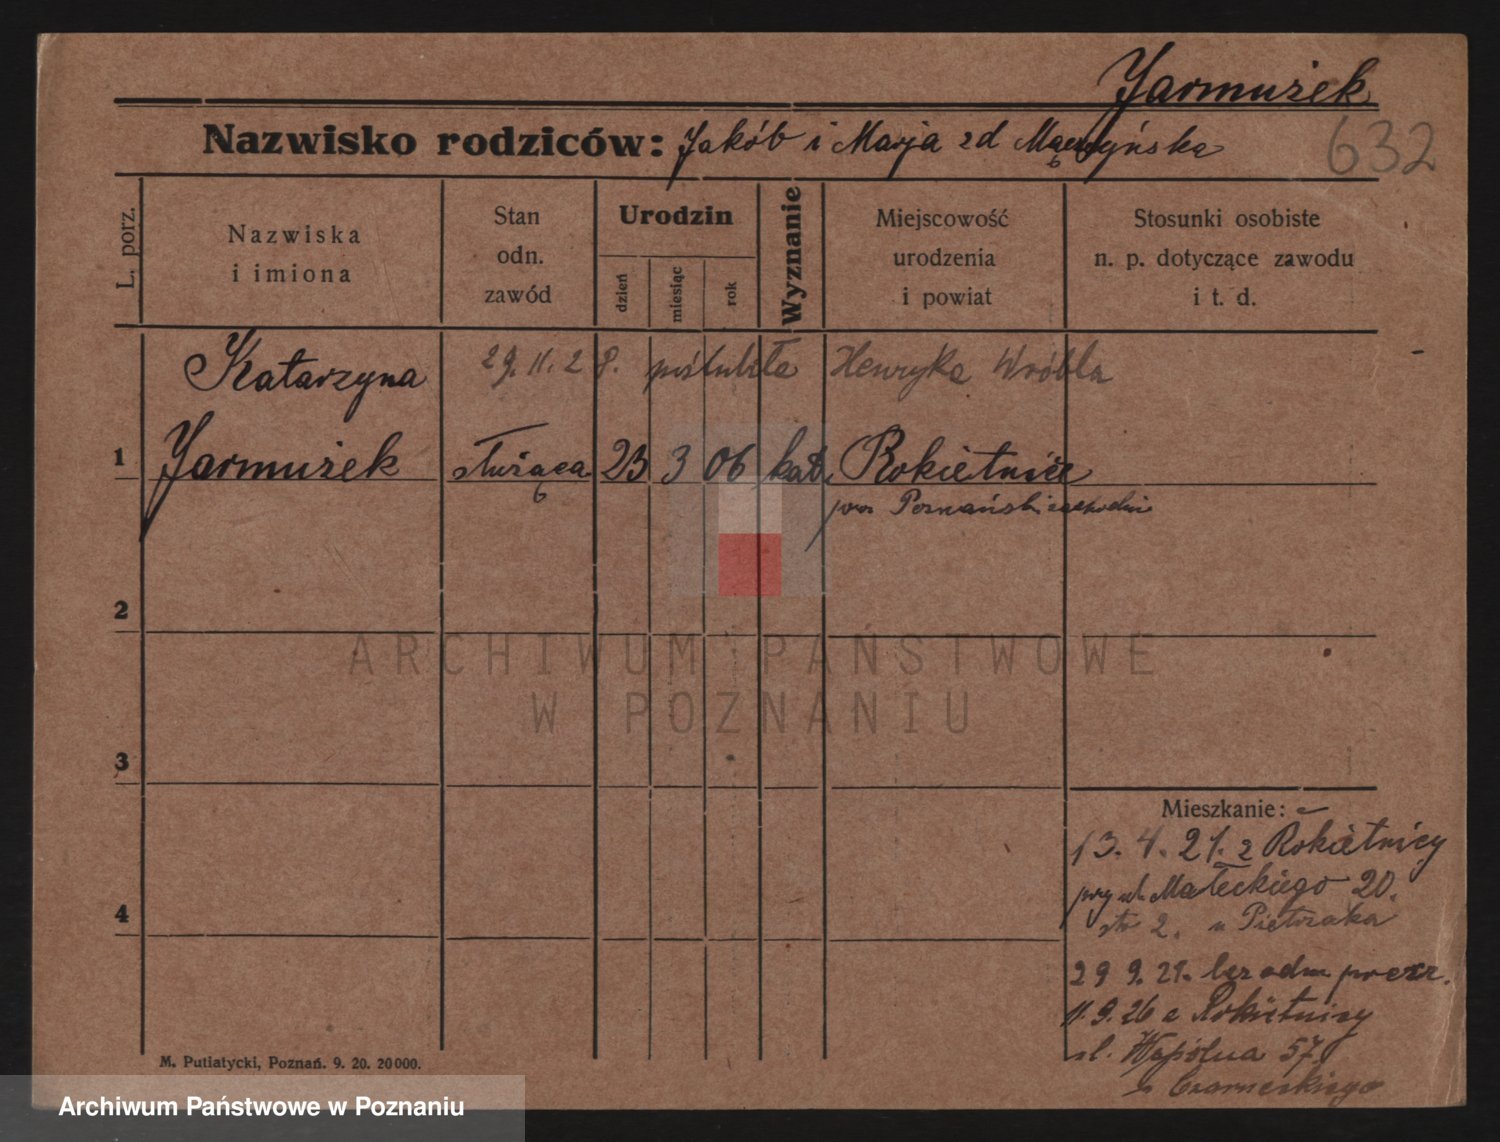 Jarmużek
Nazwisko rodziców: Jakób i Marja zd
632
L. porz.
Nazwiska
i imiona
Stan
odn.
zawód
Urodzin
dzień
miesiąc
rok
Wyznanie
Miejscowość
urodzenia
i powiat
Stosunki osobiste
n. p. dotyczące zawodu
i t. d.
Katarzyna 29.11.28. poślubiła Henryka Wróbla
1 Jarmużek służąca 23 3 06 kat. Rokietnica
pow Poznański zachodni
2
3
4
Mieszkanie:
13. 4. 21. z Rokietnicy
przy ul. Małeckiego 20.
2. u Pietrzaka
29 9. 21. bez odm
11.9.26 z Rokietnicy
ul. Wspólna 57.
u Czarneckiego
M. Putiatycki, Poznań. 9. 20. 20000.
ARCHIWUM PAŃSTWOWE
W POZNANIU
Archiwum Państwowe w Poznaniu